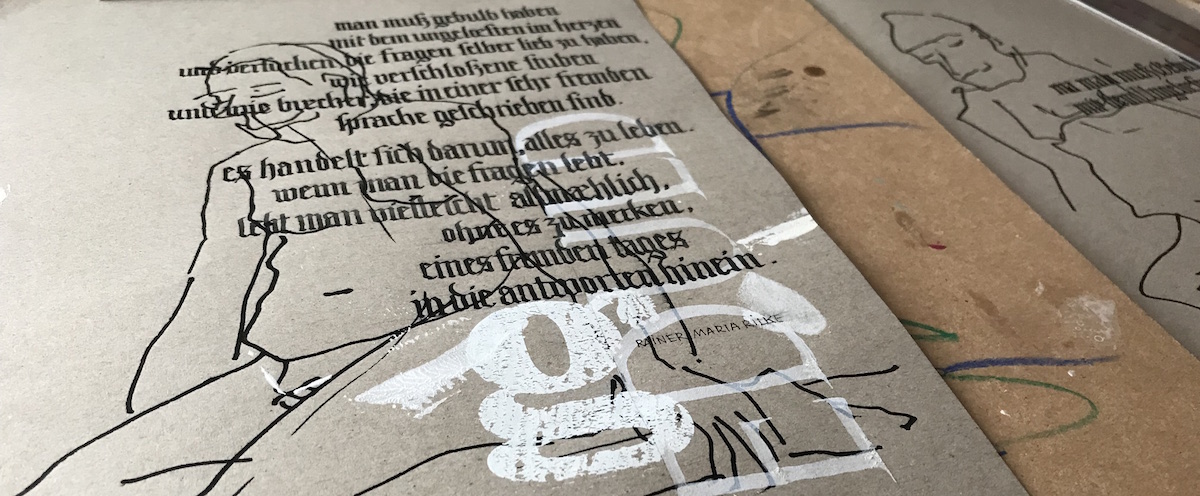 man muß geduld haben
mit dem ungelœsten im herzen
und versuchen die fragen selber lieb zu haben,
wie verschloßene stuben
und wie bücher, die in einer sehr fremden
sprache geschrieben sind.
es handelt sich darum, alles zu leben.
wenn man die fragen lebt,
lebt man vielleicht allmæhlich,
ohne es zu merken,
eines fremden tages
in die antworten hinein.
RAINER MARIA RILKE
man muß
mit dem